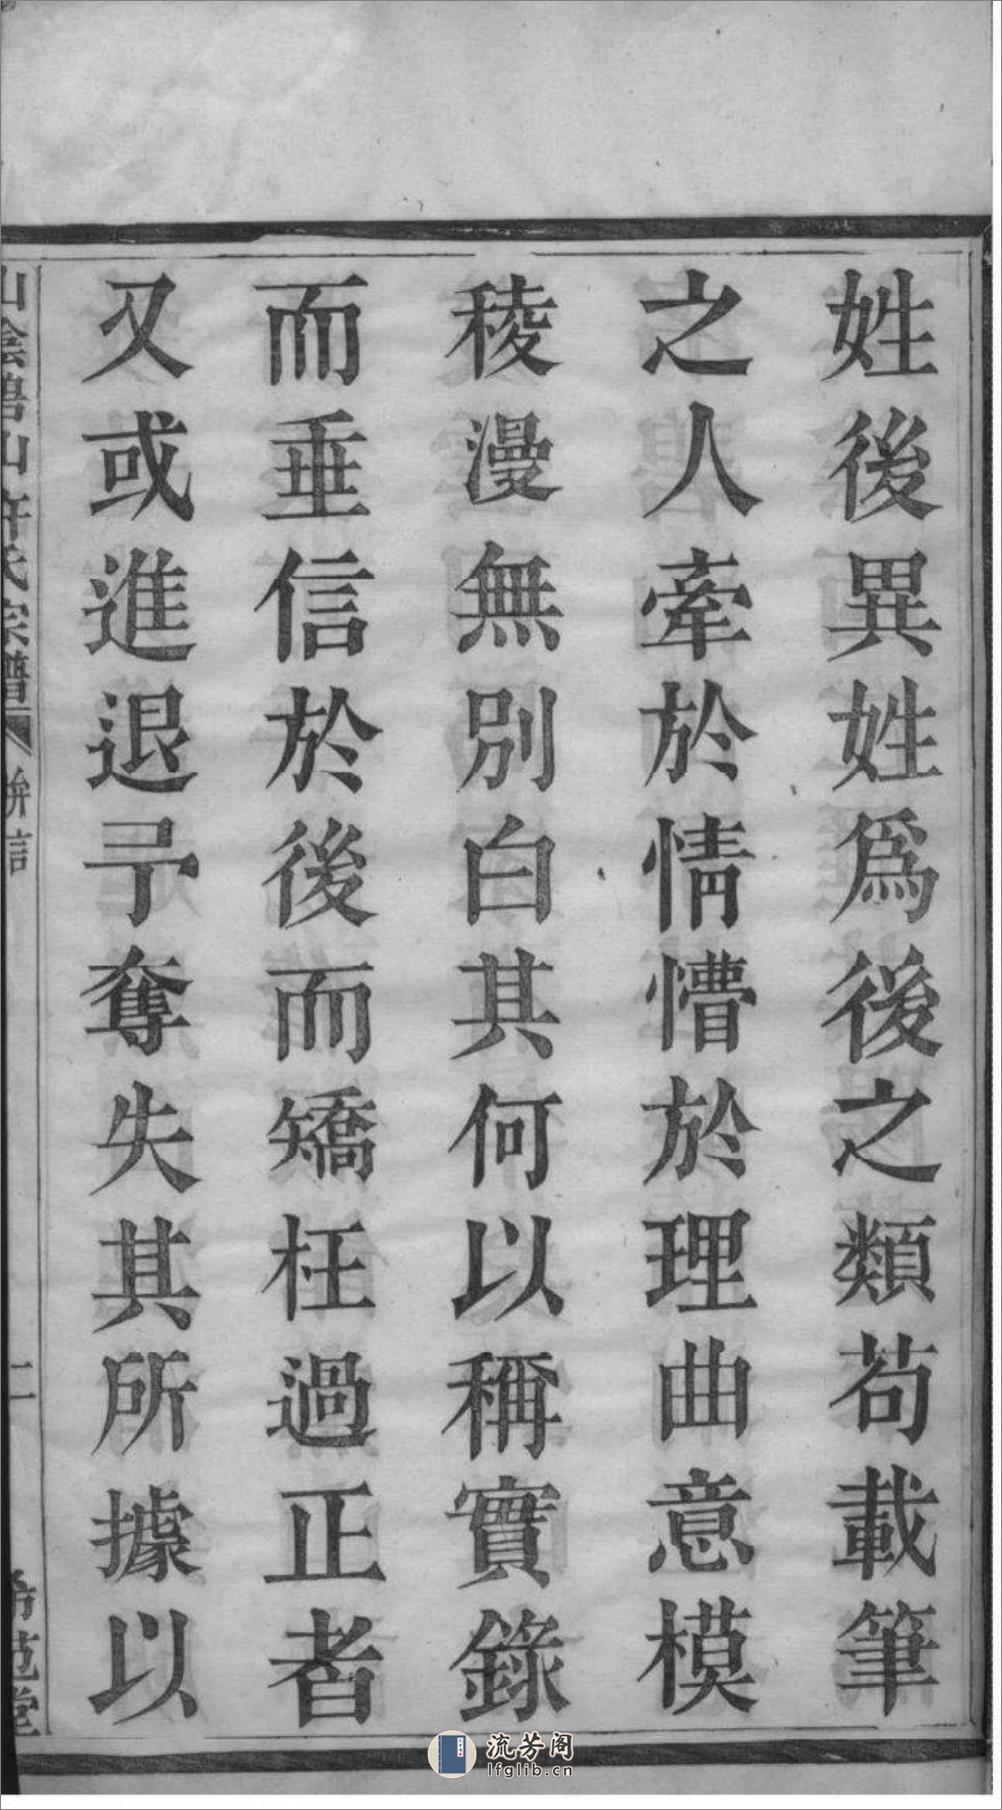 姓後異姓爲後之類苟載筆
之人牽於情懵於理曲意模
稜漫無別白其何以稱實錄
而垂信於後而矯枉過正者
又或進退予奪失其所據以
山陰碧山許氏宗譜
二
希范堂
流芳阁
lfglib.cn